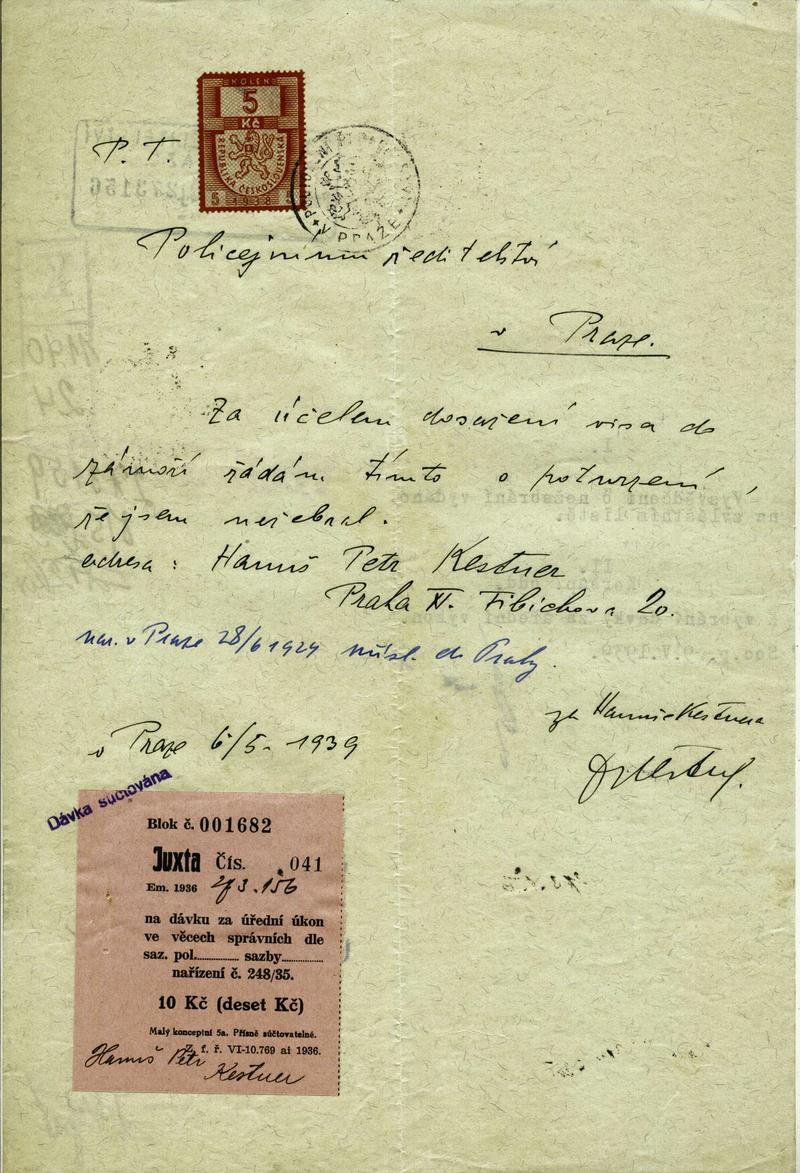 KOLEK
5
Kč
REPUBLIKA ČESKOSLOVENSKÁ
5 1938
P. T.
PRAZE
Policejnímu ředitelství
v Praze.
Za účelem dosažení visa do
zámoří žádám tímto o potvrzení,
že jsem nežebral.
adresa: Hanuš Petr Kestner
Praha XI. Fibichova 20.
nar. v Praze 28/6 1924 přísl. do Prahy.
za Hanuše Kestnera
v Praze 6/5. 1939
Dávka súčtována
Blok č. 001682
Juxta Čís. 041
Em. 1936 273.156
na dávku za úřední úkon
ve věcech správních dle
saz. pol. sazby
nařízení č. 248/35.
10 Kč (deset Kč)
Malý konceptní 5a. Přísně súčtovatelné.
Z. f. ř. VI-10.769 ai 1936.
Hanuš Petr
Kestner